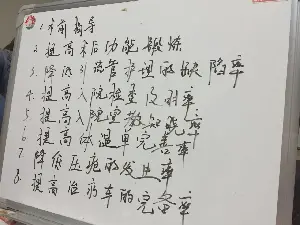 1 术前指导
2. 提高术后功能锻炼
3. 降低引流管护理的缺陷率
4. 提高入院检查及时率
5 提高入院宣教知晓率
6 提高体温单完善率
7 降低压疮的发生率
8. 提高治疗车的完备率